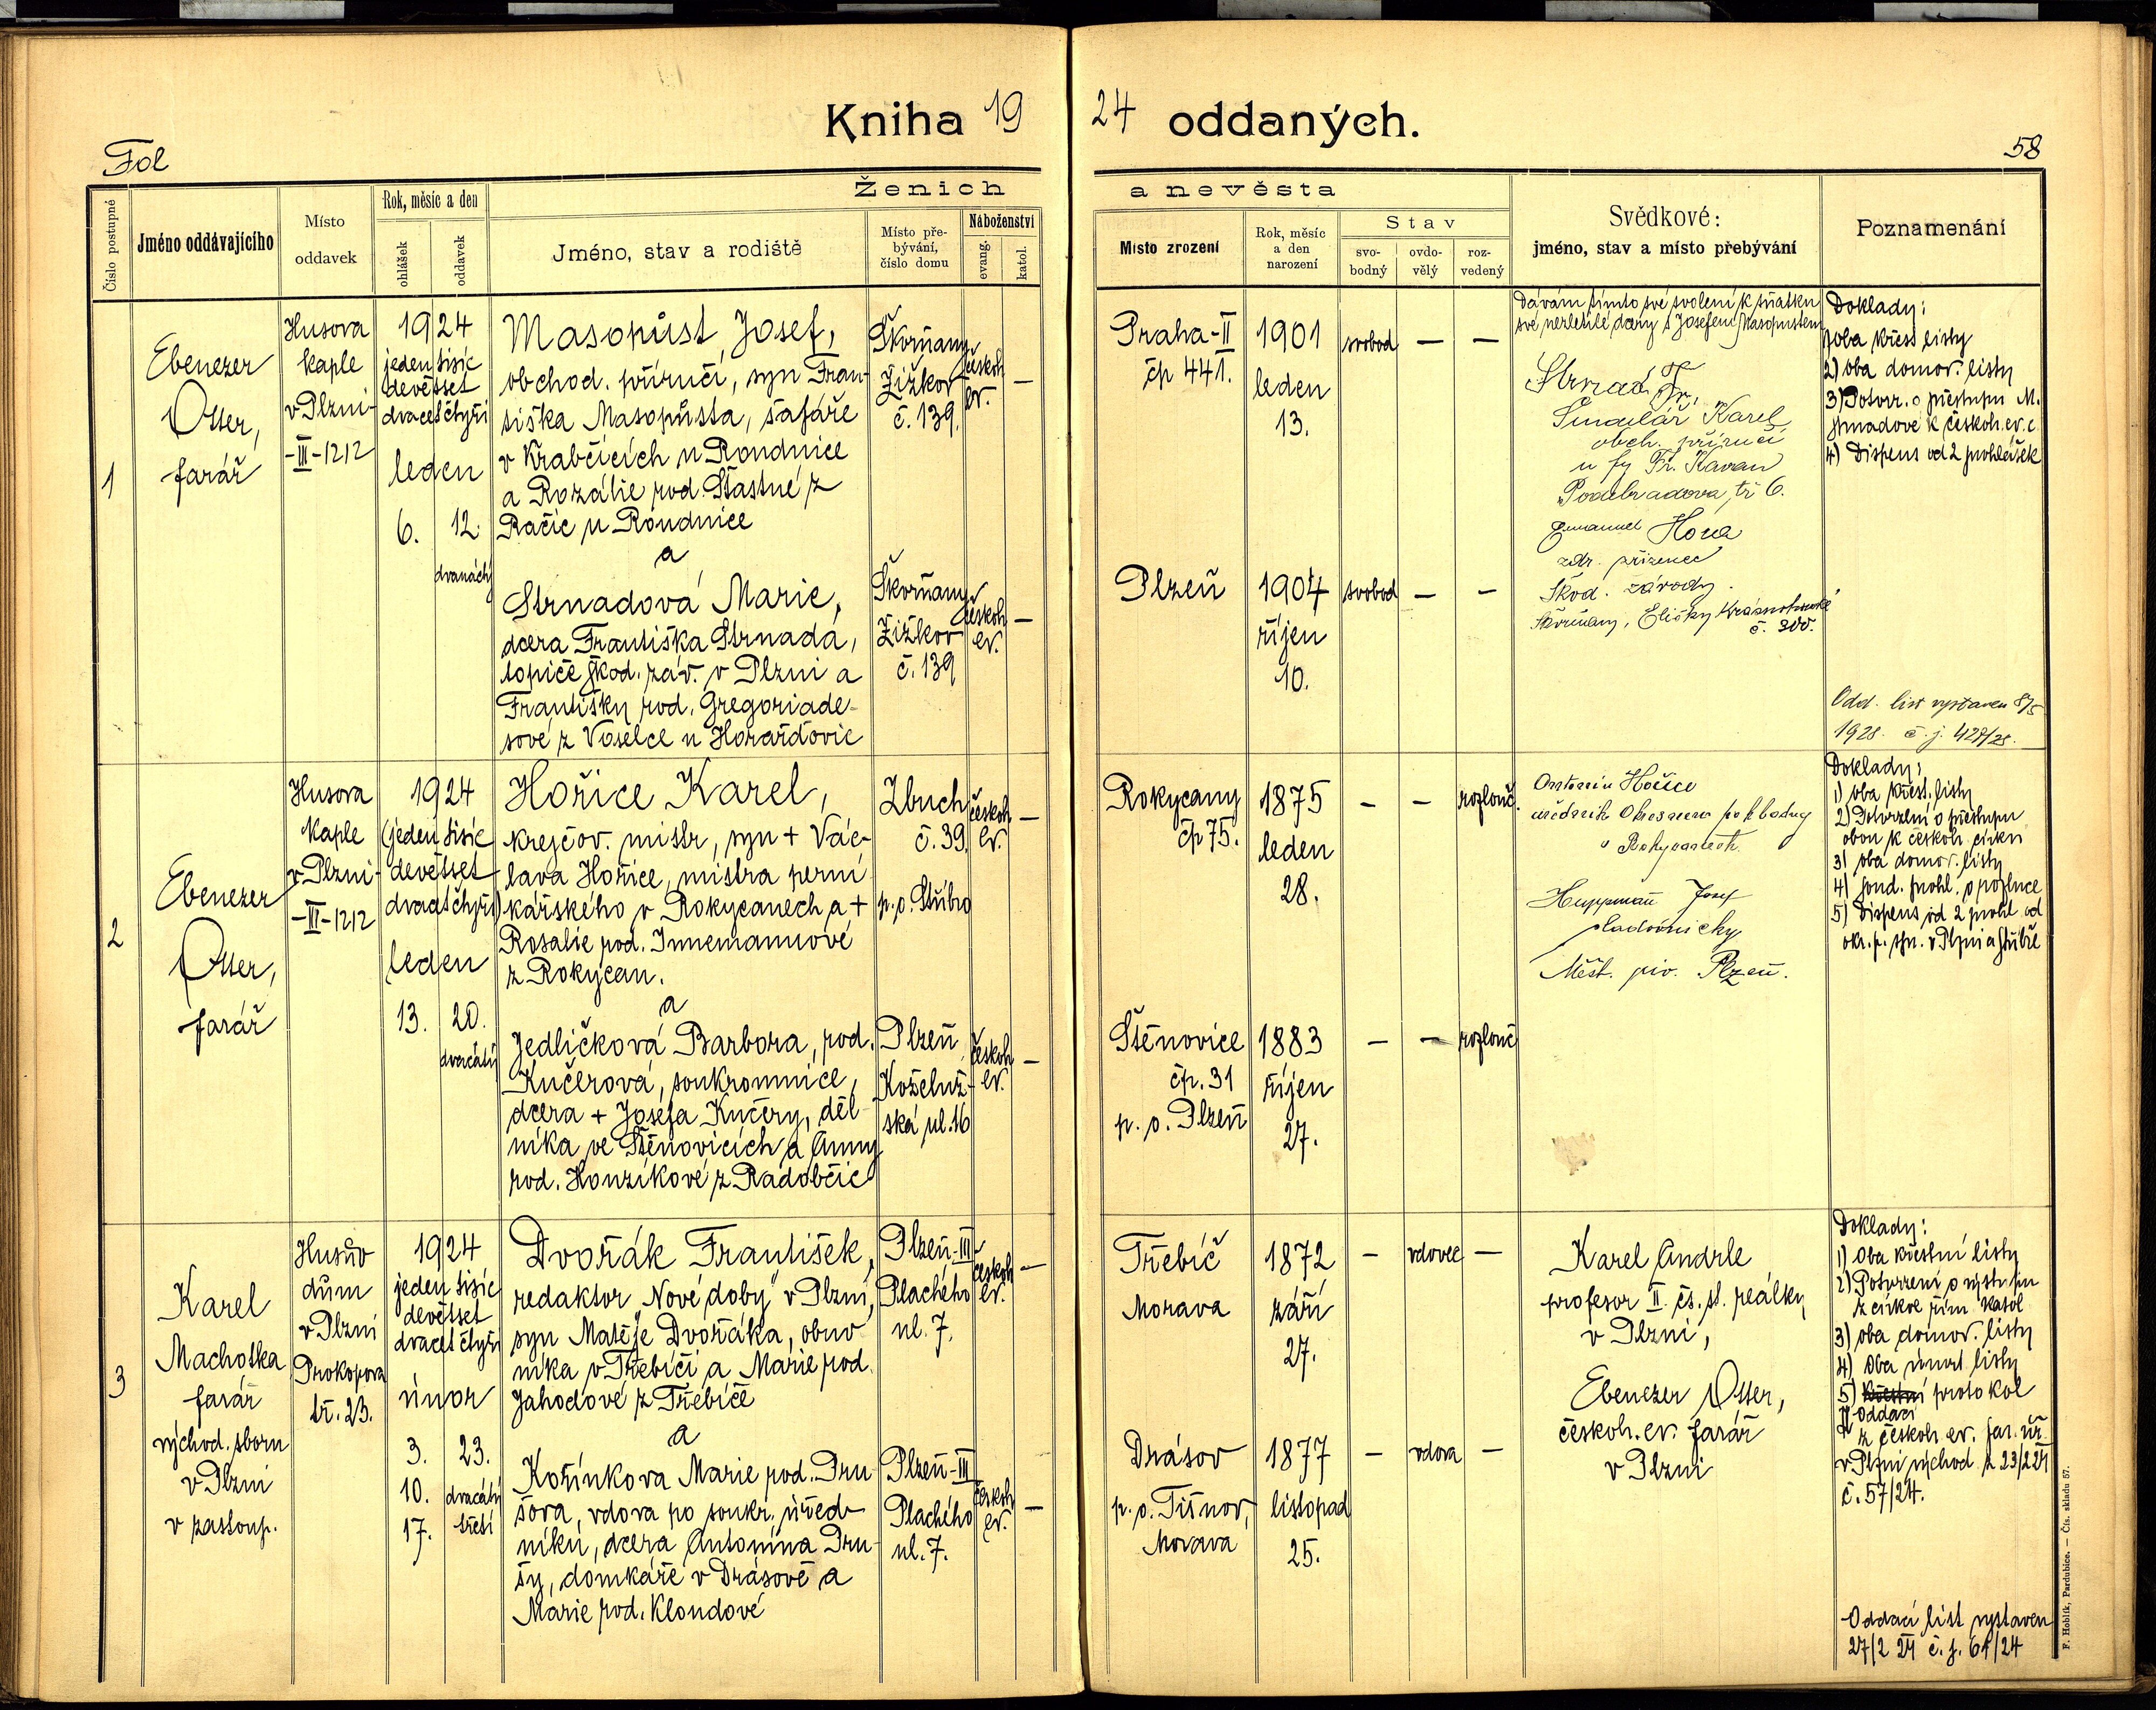 Kniha 1924 oddaných.
Fol
58
Ženich a nevěsta
Číslo postupné
Jméno oddávajícího
Místo oddavek
Rok, měsíc a den
ohlášek
oddavek
Jméno, stav a rodiště
Místo pře-
bývání,
číslo domu
Náboženství
evang.
katol.
Místo zrození
Rok, měsíc
a den
narození
Stav
svo-
bodný
ovdo-
vělý
roz-
vedený
Svědkové:
jméno, stav a místo přebývání
Poznamenání
1
Ebenezer
Otter,
farář
Husova
kaple
v Plzni-
-III-1212
1924
jeden tisíc
devětset
dvacet čtyři
leden
6. 12.
dvanáctý
Masopůst, Josef,
obchod. příručí, syn Fran-
tiška Masopůsta, šafáře
v Krabčicích u Roudnice
a Rozálie rod. Šťastné z
Račic u Roudnice
a
Strnadová Marie,
dcera Františka Strnada,
topiče Škod. záv. v Plzni a
Františky rod. Gregoriade-
sové z Voselce u Horažďovic
Škvrňany
Žižkov
č. 139.
českob
ev.
—
Škvrňany
Žižkov
č. 139
českob
ev.
—
Praha-II
čp 441.
1901
leden
13.
svobod
—
—
Plzeň
1904
říjen
10.
svobod
—
—
Dávám tímto své svolení k sňatku
své nezletilé dcery s Josefem Masopustem
Strnad Fr.
Karel
obch. příručí
u fy Fr. Kavan
Poděbradova tř 6.
Emanuel Hora
zdr. přízenec
Škod. závody.
Škvrňany, Elišky Krásnohorské
č. 300.
Doklady:
1) oba křest listy
2) oba domov. listy
3) Potvrz. o přestupu M.
Strnadové k českob. ev. c.
4) Dispens od 2 prohlášek
Odd. list vystaven 8/5
1928. č. j. 427/28.
2
Ebenezer
Otter,
farář
Husova
kaple
v Plzni-
-III-1212
1924
(jeden tisíc
devětset
dvacet čtyři)
leden
13. 20.
dvacátý
Hořice Karel,
krejčov. mistr, syn + Vác-
lava Hořice, mistra perní
kářského v Rokycanech a +
Rosalie rod. Innemannové
z Rokycan.
a
Jedličková Barbora, rod.
Kučerová, soukromnice,
dcera + Josefa Kučery, děl-
níka ve Štěnovicích a Anny
rod. Honzíkové z Radobčic
Zbuch
č. 39.
p. o. Stříbro
českob
ev.
—
Plzeň
Koželuž-
ská ul. 16
českob
ev.
—
Rokycany
čp 75.
1875
leden
28.
—
—
rozlouč.
Štěnovice
čp. 31
p. o. Plzeň
1883
říjen
27.
—
—
rozlouč
Antonín Hořice
úředník Okresní pokladny
v Rokycanech
Huppmann Josef
sladovnický
Měšt. piv. Plzeň.
Doklady:
1) oba křest. listy
2) Potvrzení o přestupu
obou k českob. církvi
3) oba domov. listy
4) soud. prohl. o rozluce
5) Dispens od 2 prohl. od
okr. p. spr. v Plzni a Stříbře
3
Karel
Machotka
farář
východ. sboru
v Plzni
v zastoup.
Husův
dům
v Plzni
Prokopova
tř. 23.
1924
jeden tisíc
devětset
dvacet čtyři
únor
3. 23.
10. dvacátý
17. třetí
Dvořák František,
redaktor „Nové doby" v Plzni,
syn Matěje Dvořáka, obuv
níka v Třebíči a Marie rod.
Jahodové z Třebíče
a
Kořínkova Marie rod. Dru-
šova, vdova po soukr. úřed-
níku, dcera Antonína Dru-
šy, domkáře v Drásově a
Marie rod. Kloudové
Plzeň-III
Plachého
ul. 7.
českob
ev.
—
Plzeň-III
Plachého
ul. 7.
českob
ev.
—
Třebíč
Morava
1872
září
27.
—
vdovec
—
Drásov
p. o. Tišnov,
Morava
1877
listopad
25.
—
vdova
—
Karel Andrle
profesor II. čs. st. reálky
v Plzni,
Ebenezer Otter,
českob. ev. farář
v Plzni
Doklady:
1) Oba křestní listy
2) Potvrzení o výstupu
z církve řím. katol
3) oba domov. listy
4) Oba úmrt listy
5) protokol
oddací
z českob. ev. far. úř.
v Plzni východ. z 23/2 24
č. 57/24.
Oddací list vystaven
27/2 24 č. j. 61/24
F. Hoblík, Pardubice. — Čís. skladu 57.